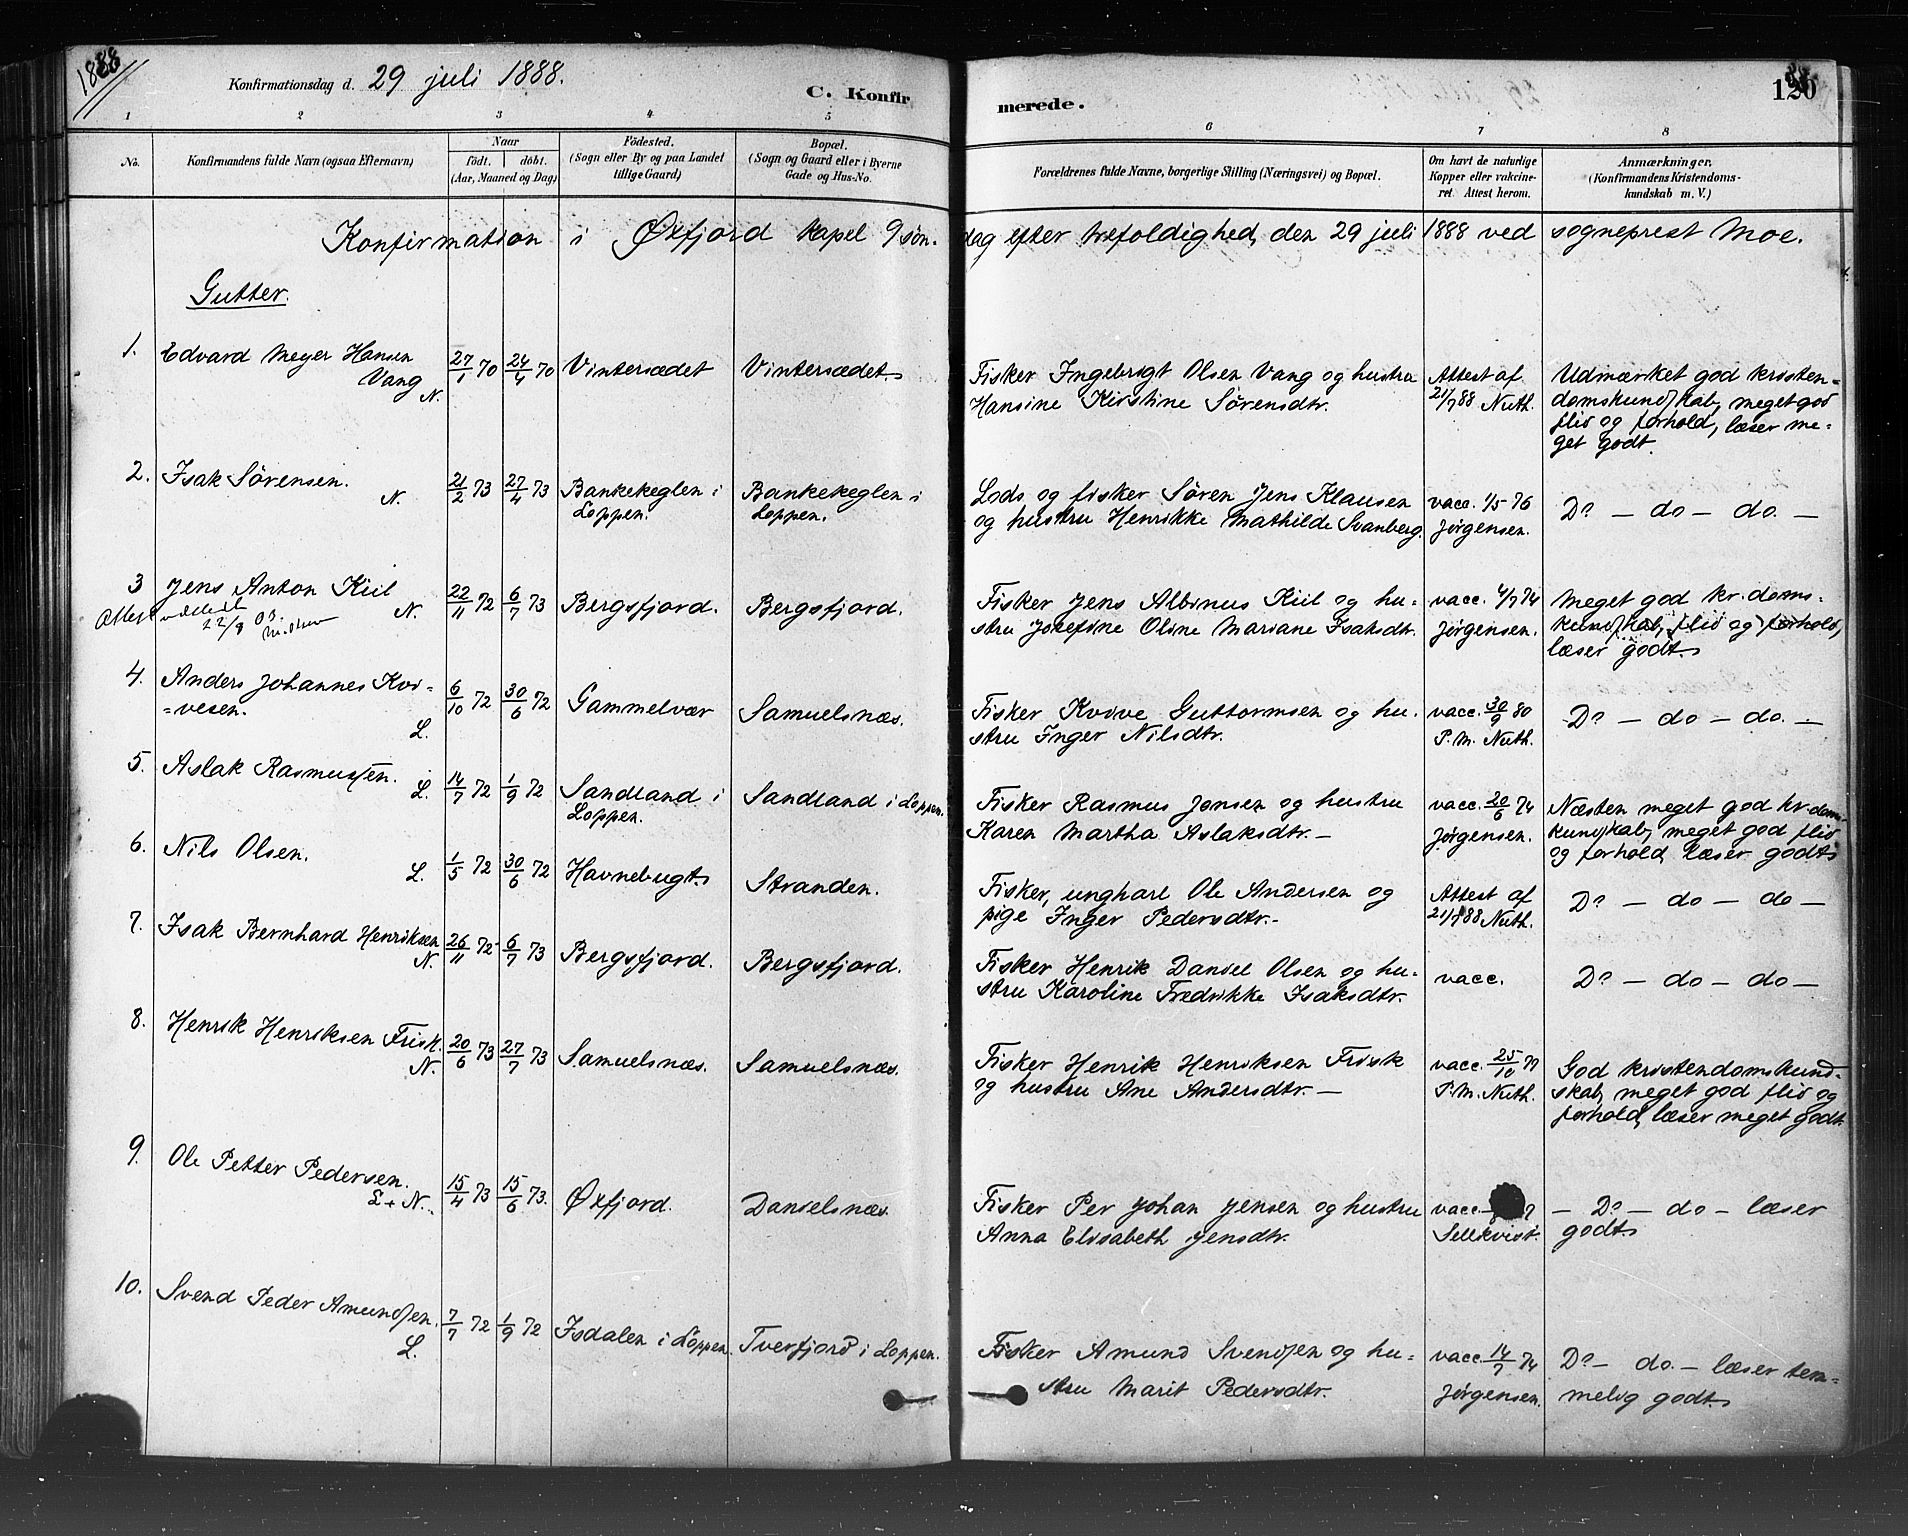 1888
Konfirmationsdag d. 29 juli 1888.
C. Konfirmerede.
120
1 2 3 4 5 6 7 8
No. Konfirmandens fulde Navn (ogsaa Efternavn) Naar født. døbt. (Aar, Maaned og Dag) Fødested. (Sogn eller By og paa Landet tillige Gaard) Bopæl. (Sogn og Gaard eller i Byerne Gade og Hus-No. Forældrenes fulde Navne, borgerlige Stilling (Næringsvei) og Bopæl. Om havt de naturlige Kopper eller vakcineret. Attest herom. Anmærkninger. (Konfirmandens Kristendomskundskab m. V.)
Konfirmation i Øxfjord kapel 9 søndag efter trefoldighed, den 29 juli 1888 ved sogneprest Moe.
Gutter.
1. Edvard Meyer Hansen Vang N. 27/1 70 24/4 70 Vintersædet Vintersædet. Fisker Ingebrigt Olsen Vang og hustru Attest af Udmærket god kristen-
Hansine Kirstine Sørensdtr. 21/7 88 Nuth. domskundskab, meget god
flid og forhold, læser me-
get godt.
2. Isak Sørensen. N. 21/2 73 27/4 73 Bankekeglen i Loppen. Bankekeglen i Loppen. Lods og fisker Søren Jens Klausen vacc. 1/5 76 Do - do - do. -
og hustru Henrikke Mathilde Svanberg. Jørgensen.
3 Jens Anton Kiil N. 22/11 72 6/7 73 Bergsfjord. Bergsfjord. Fisker Jens Albinus Kiil og hu- vacc. 4/7 74 Meget god kr.doms-
Attest 22/8 03. stru Josefine Oline Mariane Isaksdtr. Jørgensen. kundskab, flid og forhold,
læser godt.
4. Anders Johannes Kvi-
=vesen. L. 6/10 72 30/6 72 Gammelvær Samuelsnæs. Fisker Kvive Guttormsen og hu- vacc. 30/9 80 Do - do - do. -
stru Inger Nilsdtr. P.M. Nuth.
5. Aslak Rasmussen. L. 14/7 72 1/9 72 Sandland i Loppen. Sandland i Loppen. Fisker Rasmus Jensen og hustru vacc. 20/6 74 Næsten meget god kr.dom-
Karen Martha Aslaksdtr. - Jørgensen. kundskab, meget god flid
og forhold, læser godt
6. Nils Olsen. L. 1/5 72 30/6 72 Havnebugt. Stranden. Fisker, ungkarl Ole Andersen og Attest af Do - do - do -
pige Inger Pedersdtr. - 21/7 88 Nuth.
7. Isak Bernhard Henriksen N. 26/11 72 6/7 73 Bergsfjord. Bergsfjord. Fisker Henrik Daniel Olsen og hu- vacc. Do - do - do -
stru Karoline Fredrikke Isaksdtr.
8. Henrik Henriksen Frisk. N. 20/6 73 27/7 73 Samuelsnæs. Samuelsnæs. Fisker Henrik Henriksen Frisk vacc. 25/10 79 God kristendomskund-
og hustru Ane Andersdtr. - P.M. Nuth. skab, meget god flid og
forhold, læser meget godt.
9. Ole Petter Pedersen. L + N. 15/4 73 15/6 73. Øxfjord. Danielsnæs. Fisker Per Johan Jensen og hustru vacc. - Do - do - læser
Anna Elisabeth Jensdtr. Sellkvist. godt.
10. Svend Peder Amundsen. L. 7/7 72 1/9 72 Isdalen i Loppen. Tverfjord i Loppen. Fisker Amund Svendsen og hu- vacc. 14/7 74 Do - do. - læser tem-
stru Marit Pedersdtr. Jørgensen. melig godt.